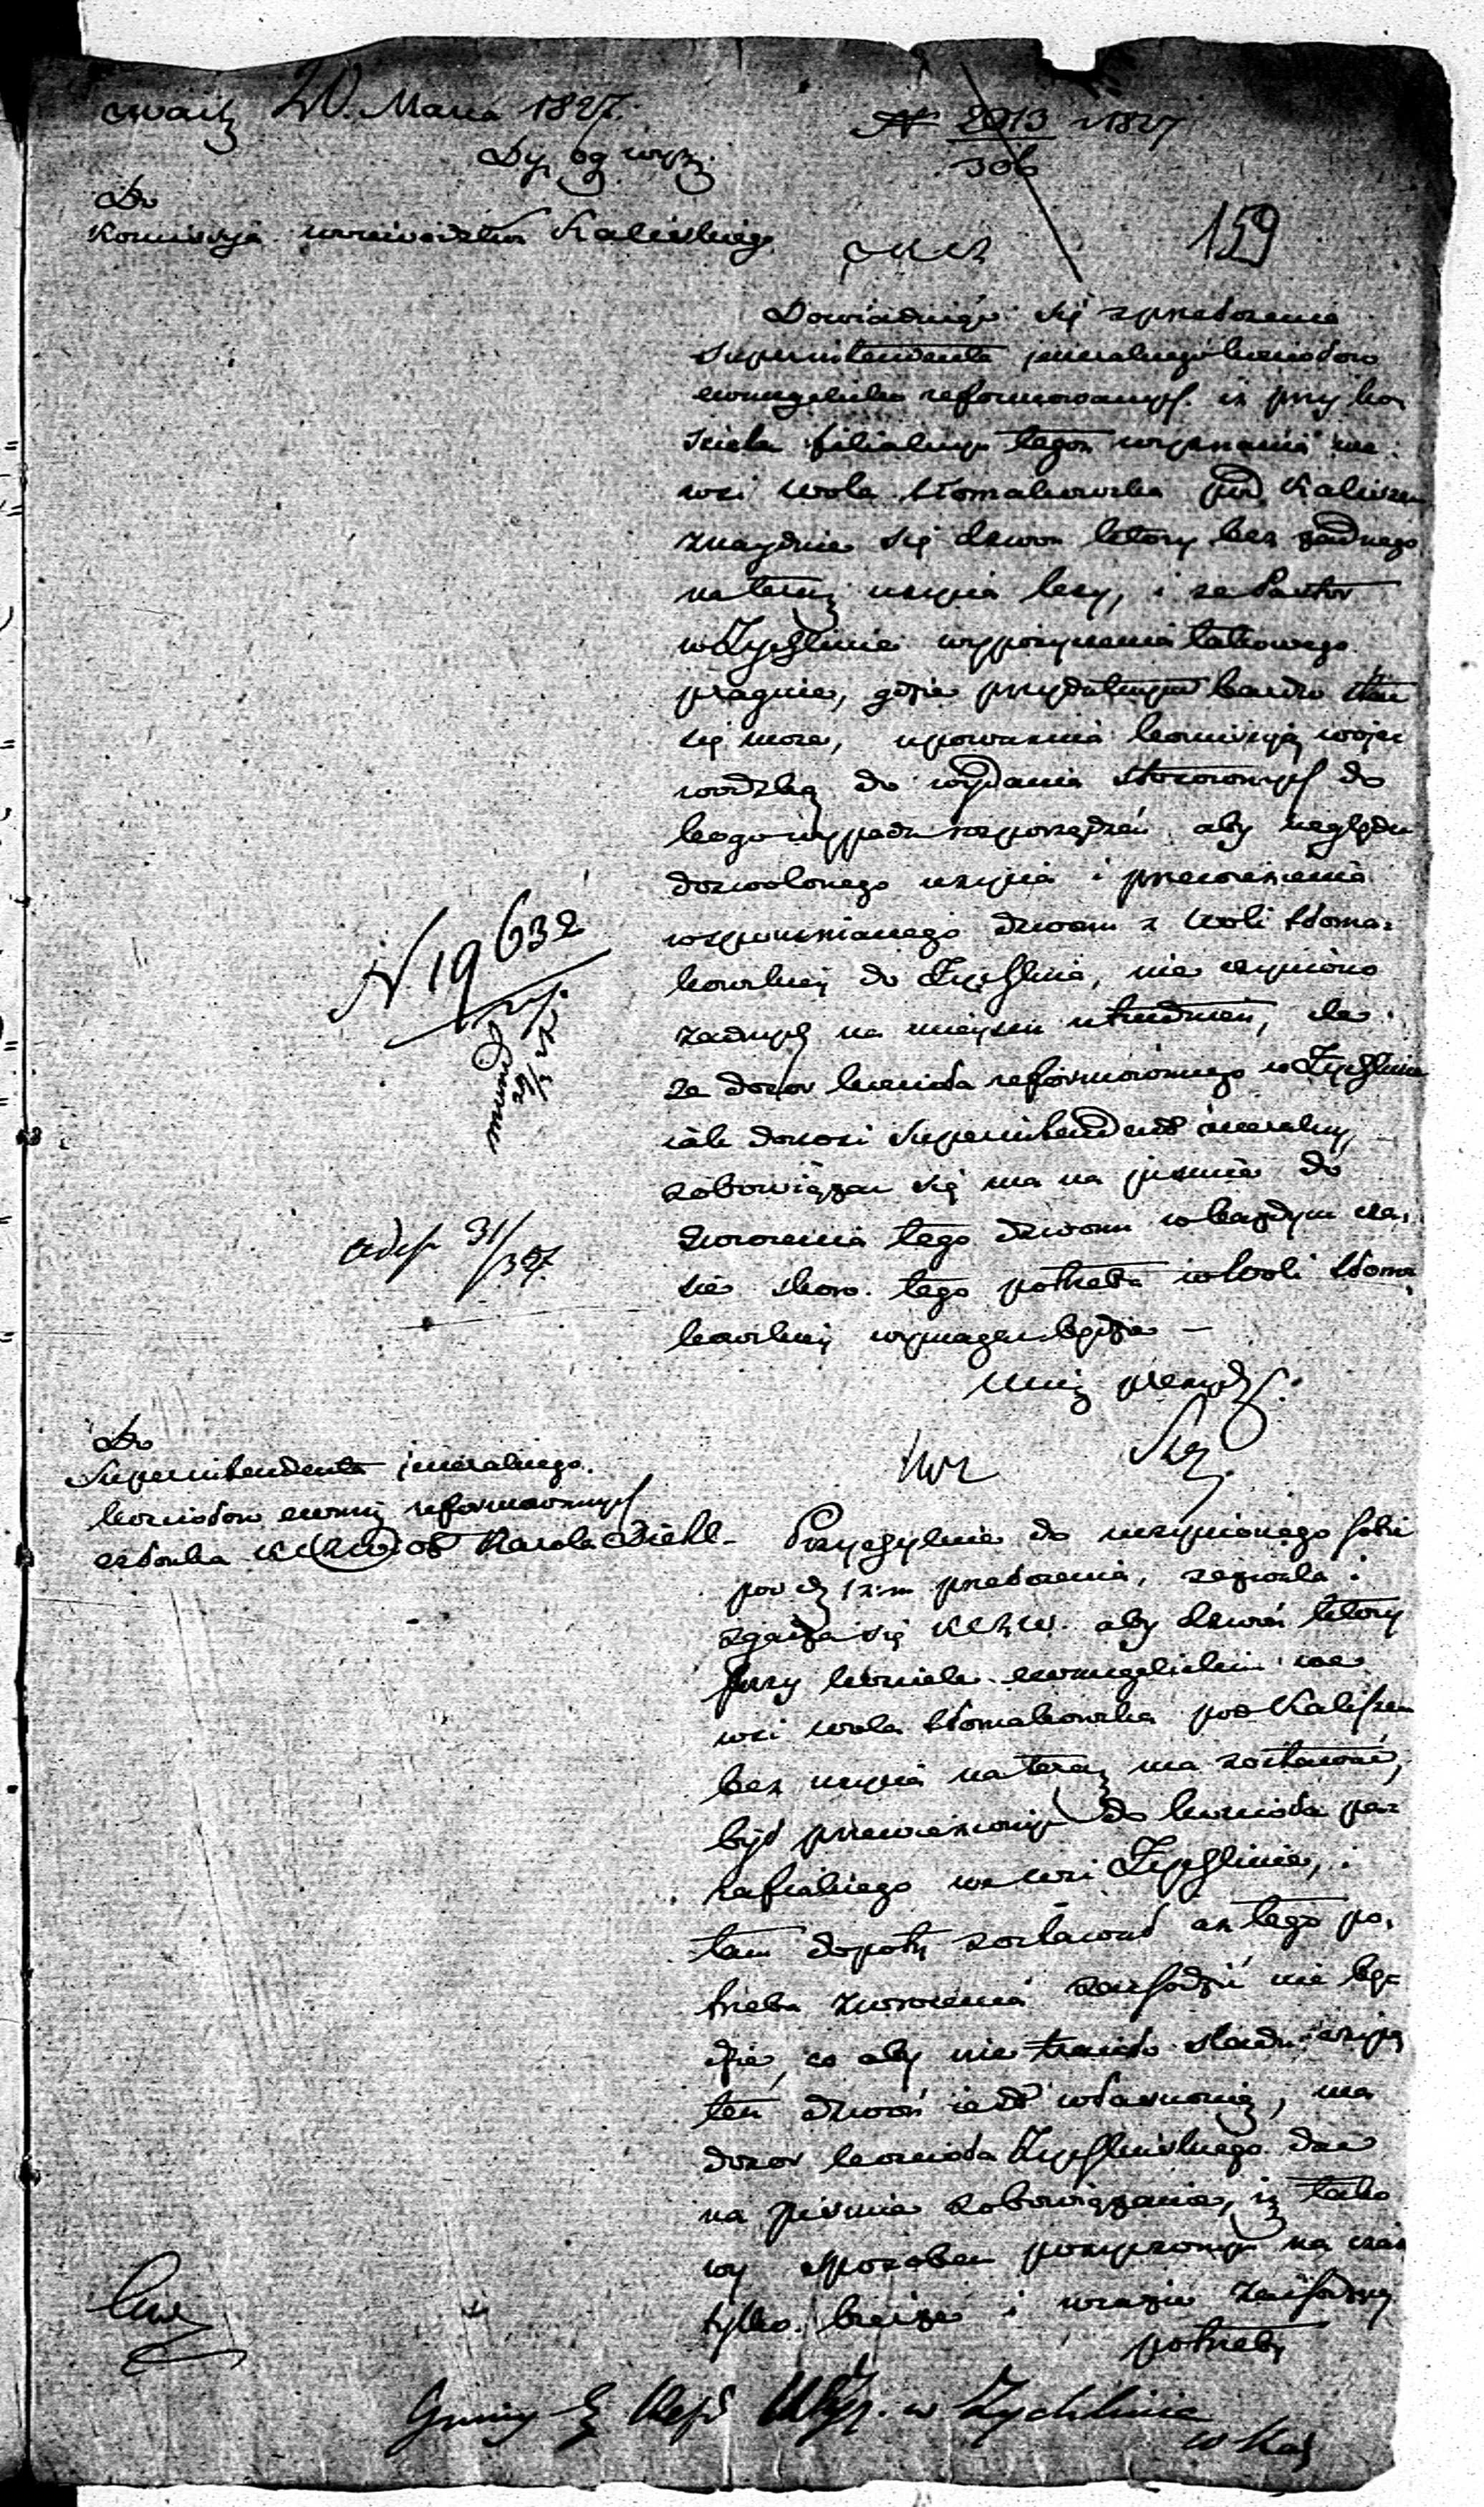 20. Marca 1827.
Dy. og. wyzn.
№ 2013 1827
306
159
Do
Komissyi Woiewództwa Kaliskiego
Dowiedziawszy się z przełożenia
Superintendenta jeneralnego kościołów
ewangelicko reformowanych. iż przy ko
ściele filialnym tegoż wyznania we
wsi Wola Tłomakowska pod Kaliszem
znayduie się dzwon który bez żadnego
na teraz użycia leży, i że Pastor
w Żychlinie wypożyczenia takowego
pragnie, gdzie przydatnym bardzo stać
się może, upoważnia kommissyą woje
wodzką do wydania stosownych do
tego wypadku rozporządzeń aby względem
dozwolonego użycia i przewiezienia
wspomnianego dzwonu z Woli Tłoma:
kowskiey do Żychlina, nie czyniono
żadnych na mieyscu utrudnień, ile
że dozór kościoła reformowanego w Żychlinie
iak donosi Superintendent jeneralny,
zobowiązać się ma na piśmie do
zwrócenia tego dzwonu w każdym cza:
sie skoro tego potrzeba w Woli Tłoma
kowskiey wymagać będzie —
N. 19632
exp. 31/3 27.
Do
Superintendenta jeneralnego.
kościołów ewang. reformowanych
członka Karola Diehl —
Przychylnie do uczynionego sobie
pod d. przełożenia, zezwala i
zgadza się aby dzwon który
przy kościele ewangelickim we
wsi Wola Tłomakowska pod Kaliszem
bez użycia na teraz ma zostawać,
był przewieziony do kościoła pa:
rafialnego we wsi Żychlinie, i
tam dopóty zostawał aż tego po:
trzeba zwrócenia zachodzić nie bę:
dzie, co aby nie traciło śladu czyią
ten dzwon iest własnością, ma
dozór kościoła Żychlińskiego dać
na piśmie zobowiązanie, iż tako
wy sposobem pożyczonym na czas
tylko bierze i w razie zaszłey
potrzeby
Gminy E. Ref. w Żychlinie